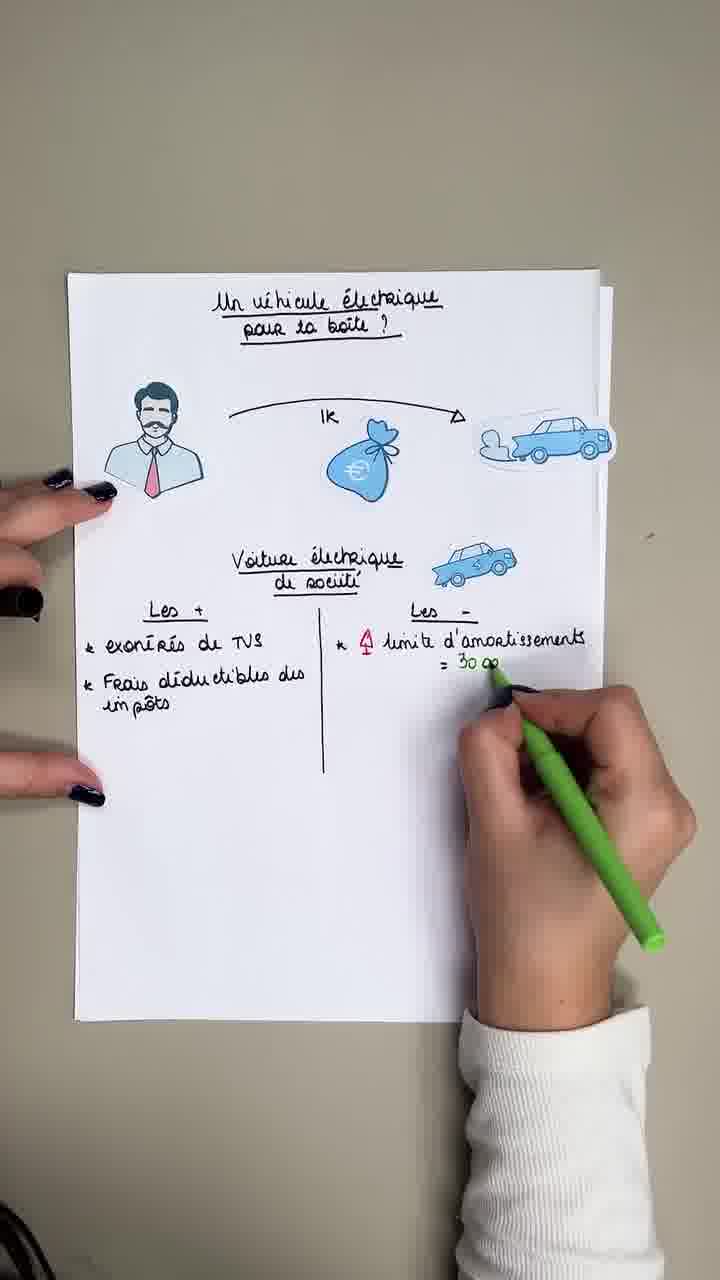 Un véhicule électrique
pour la boîte ?
IK
€
Voiture électrique
de société
Les +
* exonérés de TVS
* Frais déductibles des
impôts
Les -
* limite d'amortissements
= 30 00